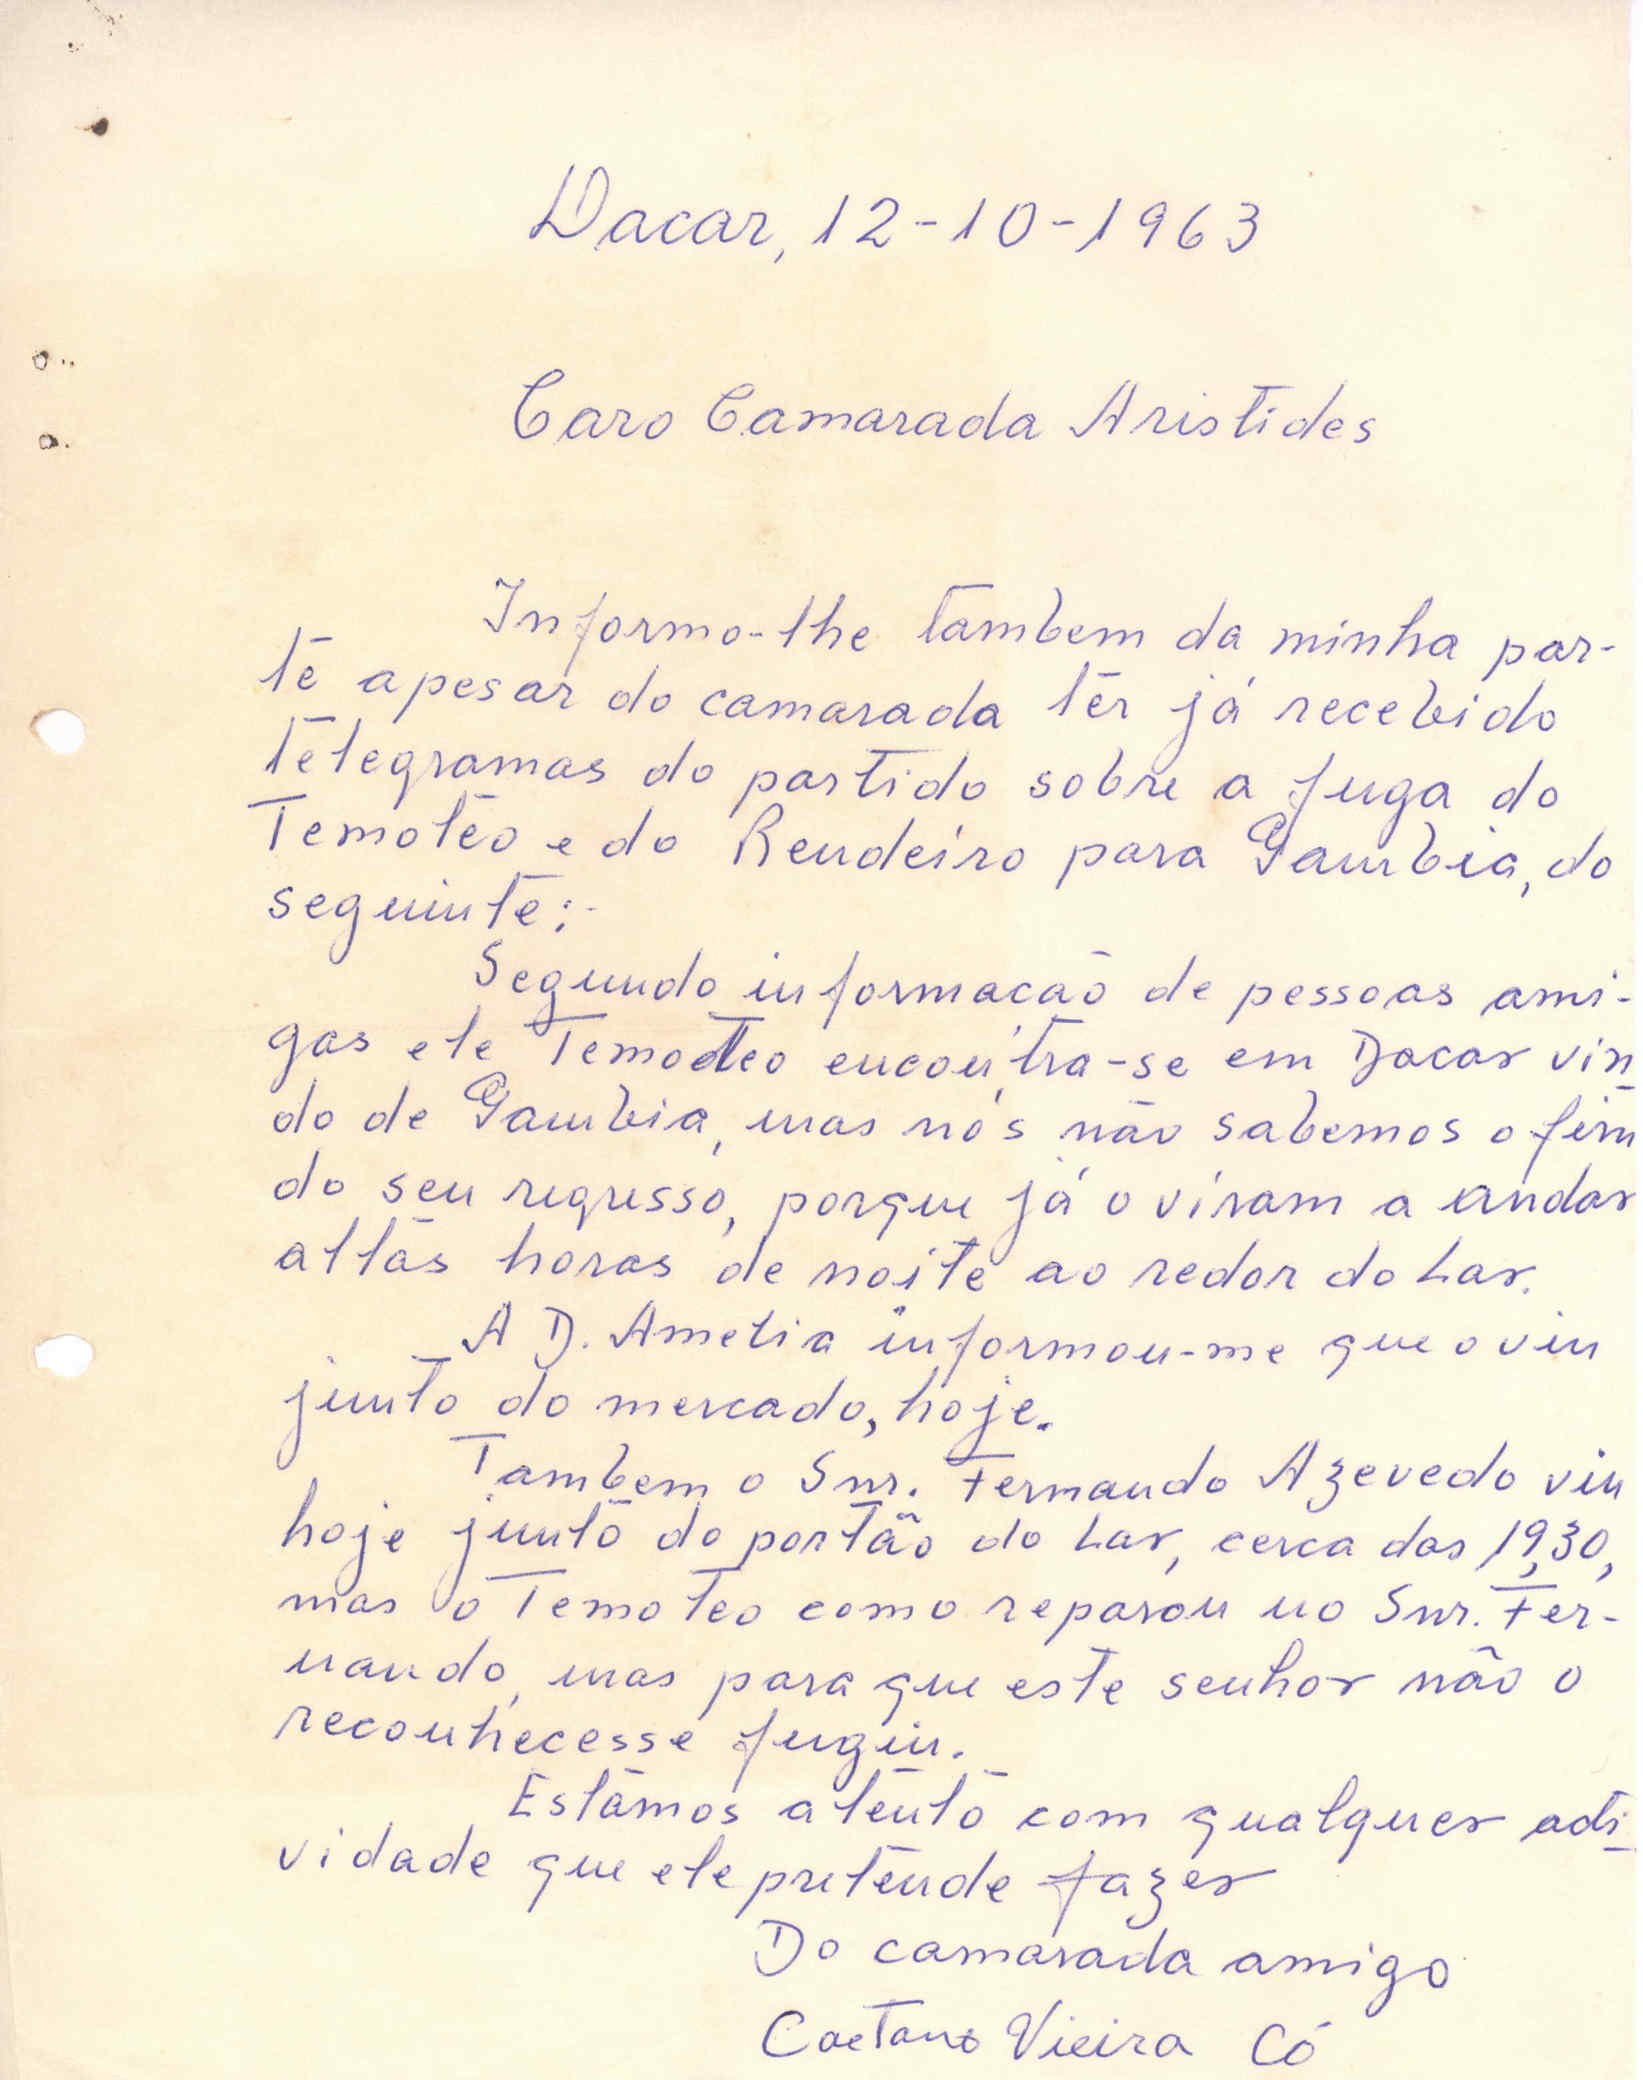 Dacar, 12-10-1963
Caro Camarada Aristides
Informo-lhe tambem da minha par-
te apesar do camarada ter já recebido
telegramas do partido sobre a fuga do
Temoteo e do Rendeiro para Gambia, do
seguinte:-
Segundo informacão de pessoas ami-
gas ele Temoteo encontra-se em Dacar vin
do de Gambia, mas nós não sabemos o fim
do seu regresso, porque já o viram a andar
altas horas de noite ao redor do Lar.
A D. Amelia informou-me que o viu
junto do mercado, hoje.
Tambem o Snr. Fernando Azevedo viu
hoje junto do portão do Lar, cerca das 19,30,
mas o Temoteo como reparou no Snr. Fer-
nando, mas para que este senhor não o
reconhecesse fugiu.
Estamos atento com qualquer acti
vidade que ele pretende fazer
Do camarada amigo
Caetano Vieira Có